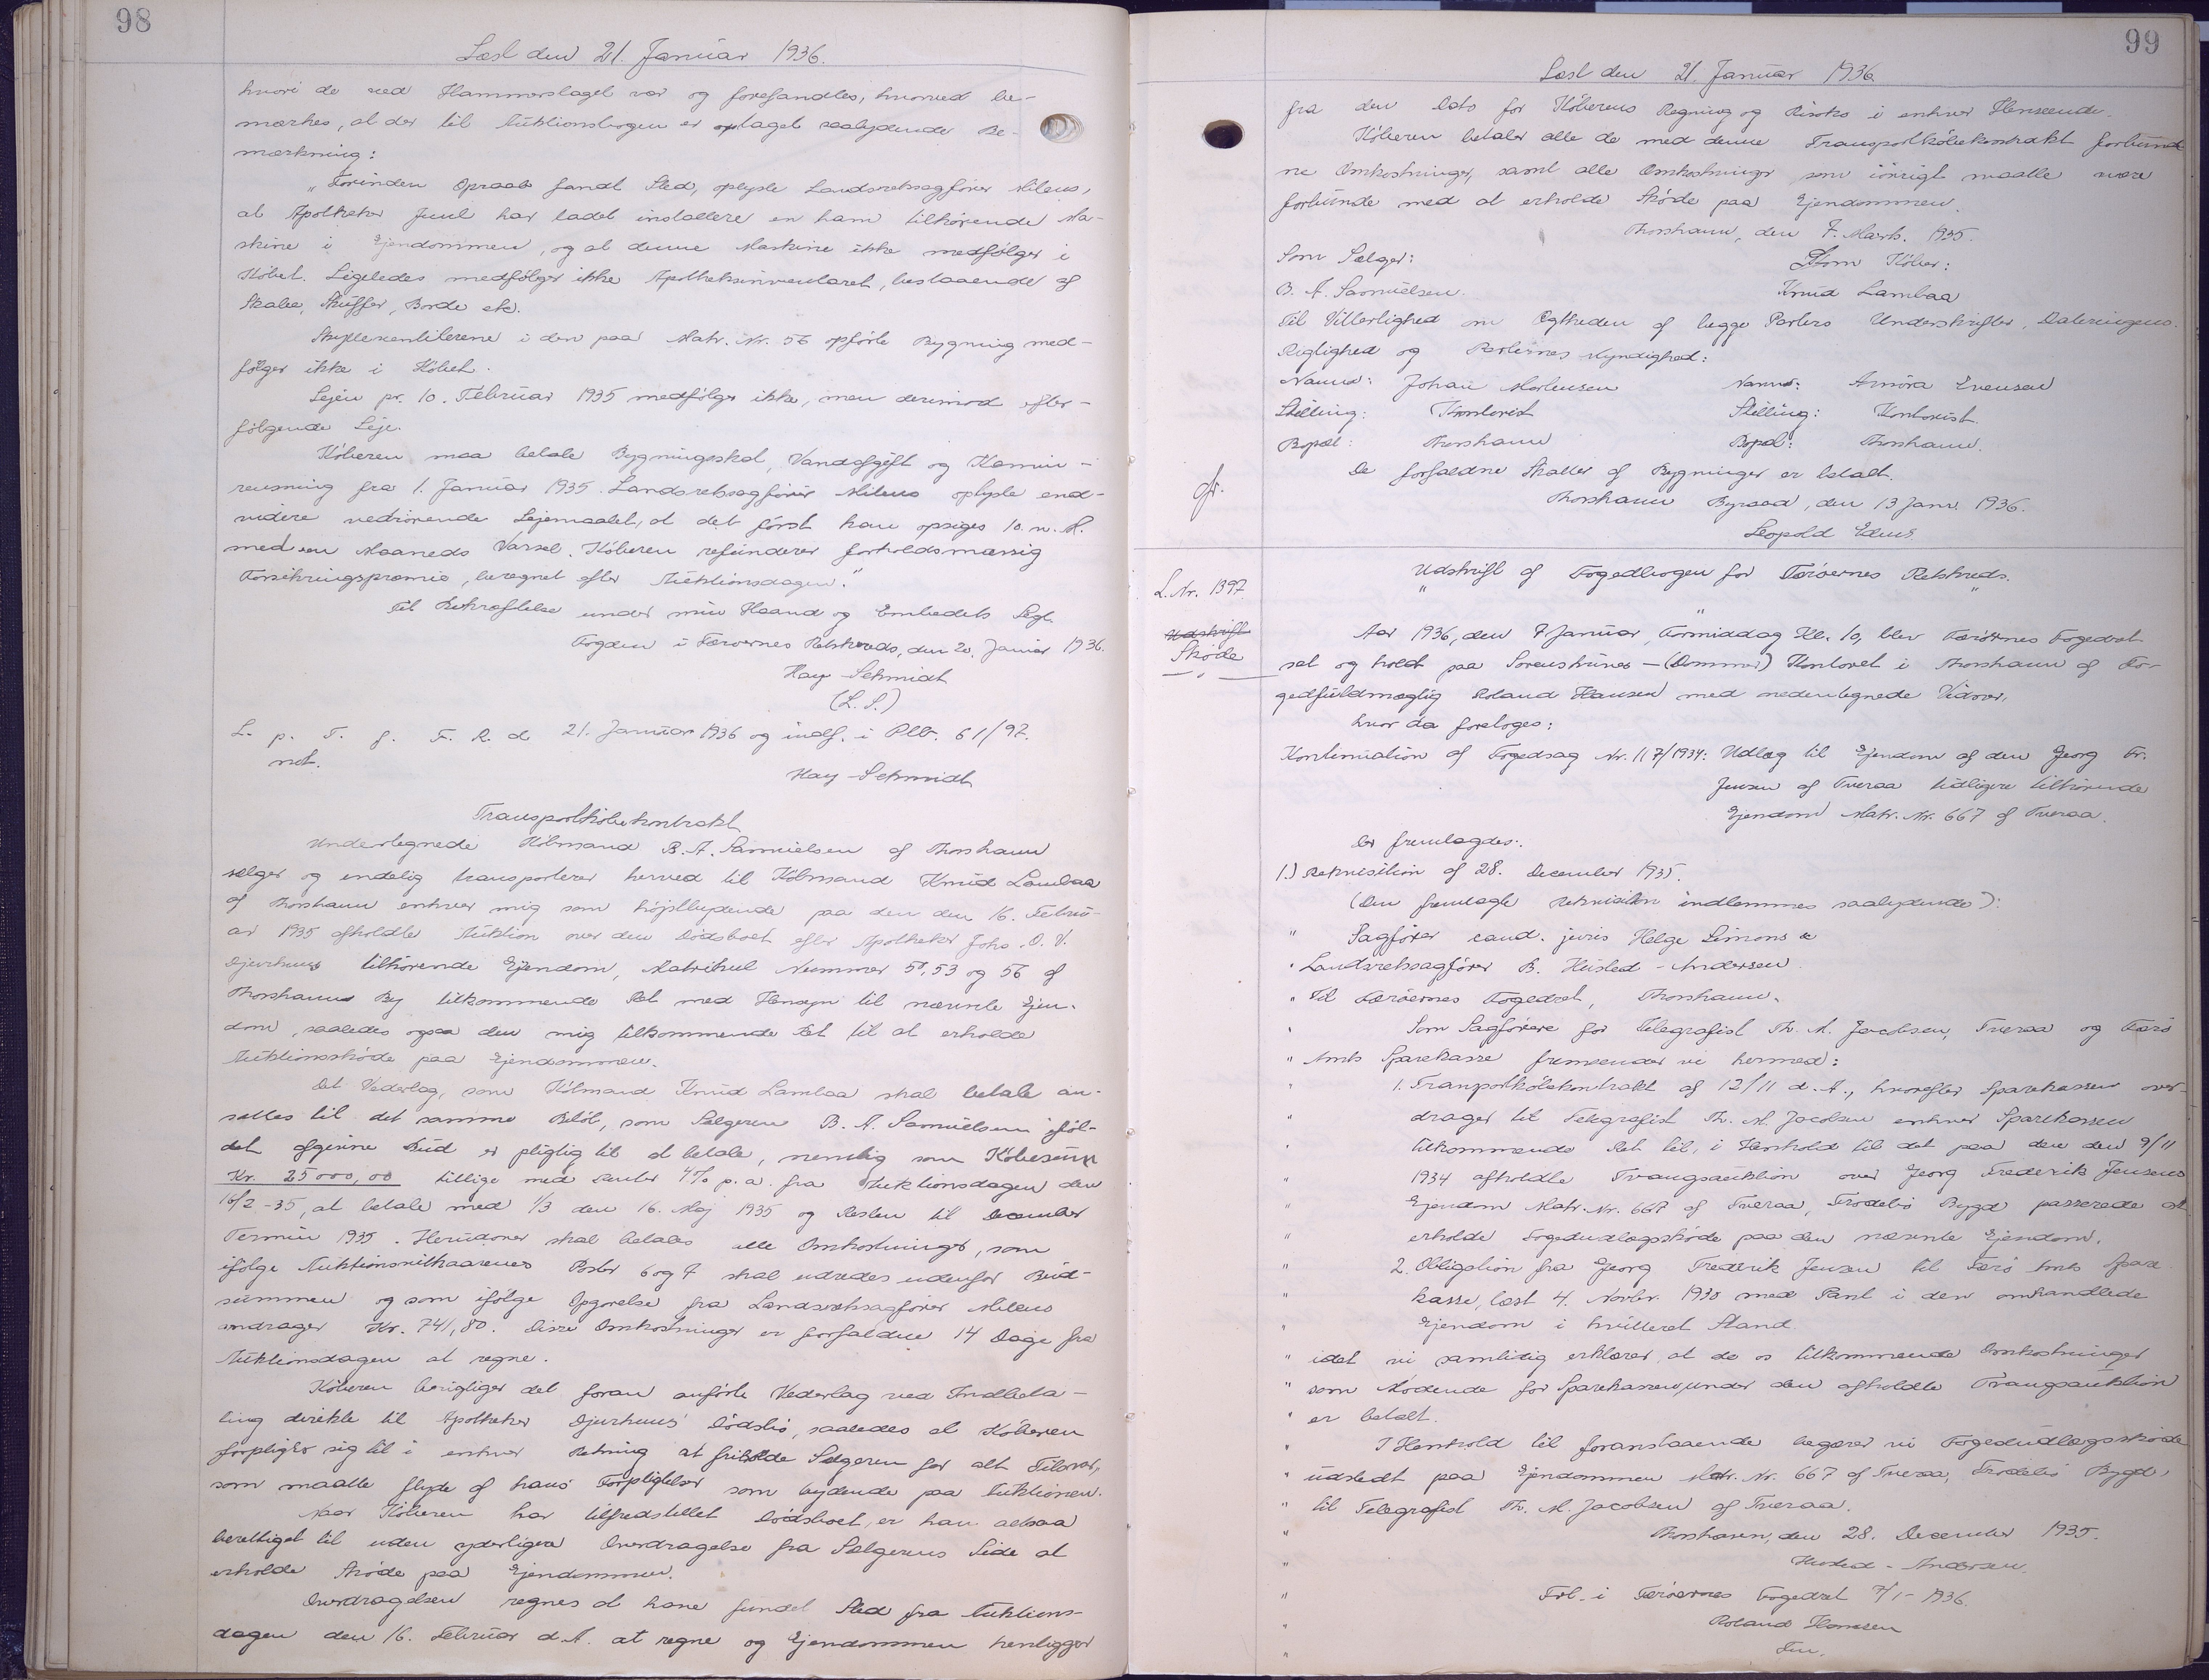 98
Læst den 21. Januar 1936.
hvori de ved Hammerslaget var og forefandtes, hvorved be-
mærkes, at der til Auktionsbogen er optaget saalydende Be-
mærkning:
„Forinden Opraab fandt Sted, oplyste Landsretssagfører Mileus,
at Apotheker Juul har ladet installere en ham tilhørende Ma-
skine i Ejendommen, og at denne Maskine ikke medfølger i
Købet. Ligeledes medfølger ikke Apotheksinventaret, bestaaende af
Skabe, Skuffer, Borde etc.
i den paa Matr. Nr. 56 opførte Bygning med-
følger ikke i Købet.
Lejen pr. 10. Februar 1935 medfølger ikke, men derimod efter-
følgende Leje.
Køberen maa betale Bygningsskat, Vandafgift og Kamin-
rensning fra 1. Januar 1935. Landsretssagfører Mileus oplyste end-
videre vedrørende Lejemaalet, at det først kan opsiges 10. n. M.
med en Maaneds Varsel. Køberen refunderer forholdsmæssig
Forsikringspræmie, beregnet efter Auktionsdagen."
Til Bekræftelse under min Haand og Embedets Segl.
Fogden i Færøernes Retskreds, den 20. Januar 1936.
Hay-Schmidt
(L.S.)
L. p. T. f. F. R. d. 21. Januar 1936 og indf. i Prot. 61/97.
not.
Hay-Schmidt
Transportkøbekontrakt
Undertegnede Købmand B. A. Samuelsen af Thorshavn
sælger og endelig transporterer herved til Købmand Knud Lambaa
af Thorshavn enhver mig som højstbydende paa den den 16. Febru-
ar 1935 afholdte Auktion over den Dødsboet efter Apotheker Johs. O. V.
Djurhuus tilhørende Ejendom, Matrikul Nummer 50, 53 og 56 af
Thorshavns By tilkommende Ret med Hensyn til nævnte Ejen-
dom, saaledes ogsaa den mig tilkommende Ret til at erholde
Auktionsskøde paa Ejendommen.
Det Vederlag, som Købmand Knud Lambaa skal betale an-
sættes til det samme Beløb, som Sælgeren B. A. Samuelsen ifølge
det afgivne Bud er pligtig til at betale, nemlig som Købesum
Kr. 25000,00 tillige med Renter 4% p.a. fra Auktionsdagen den
16/2-35, at betale med 1/3 den 16. Maj 1935 og Resten til December
Termin 1935. Herudover skal betales alle Omkostninger, som
ifølge Auktionsvilkaarenes Poster 6 og 7 skal udredes udenfor Bud-
summen og som ifølge Opgørelse fra Landsretssagfører Mileus
andrager Kr. 741,80. Disse Omkostninger er forfaldne 14 Dage fra
Auktionsdagen at regne.
Køberen berigtiger det foran anførte Vederlag ved Indbeta-
ling direkte til Apotheker Djurhuus' Dødsbo, saaledes at Køberen
forpligter sig til i enhver Retning at friholde Sælgeren for alt Tilsvar,
som maatte flyde af hans Forpligtelser som bydende paa Auktionen.
Naar Køberen har tilfredsstillet Dødsboet, er han altsaa
berettiget til uden yderligere Overdragelse fra Sælgerens Side at
erholde Skøde paa Ejendommen.
Overdragelsen regnes at have fundet Sted fra Auktions-
dagen den 16. Februar d. A. at regne og Ejendommen henligger
99
Læst den 21. Januar 1936.
fra den Dato for Køberens Regning og Risiko i enhver Henseende.
Køberen betaler alle de med denne Transportkøbekontrakt forbund
ne Omkostninger, samt alle Omkostninger som iøvrigt maatte være
forbunde med at erholde Skøde paa Ejendommen.
Thorshavn, den 7. Marts. 1935.
Som Sælger: Som Køber:
B. A. Samuelsen. Knud Lambaa
Til Vitterlighed om Ægtheden af begge Parters Underskrifter, Dateringens
Rigtighed og Parternes Myndighed:
Navn: Johan Mortensen Navn: Arnora Evensen
Stilling: Kontorist Stilling: Kontorist.
Bopæl: Thorshavn Bopæl: Thorshavn.
De forfaldne Skatter af Bygninger er betalt.
Thorshavn Byraad, den 13 Janr. 1936.
gr.
Leopold
L. Nr. 1397.
Udskrift
Skøde
Udskrift af Fogedbogen for Færøernes Retskreds.
Aar 1936, den 7 Januar, Formiddag Kl. 10, blev Færøernes Fogedret
sat og holdt paa Sorenskriver-(Dommer) Kontoret i Thorshavn af Fo-
gedfuldmægtig Roland Hansen med nedentegnede Vidner,
hvor da foretoges:
Kontinuation af Fogedsag Nr. 117/1934: Udlæg til Ejendom af den Georg Fr.
Jensen af Tveraa tidligere tilhørende
Ejendom Matr. Nr. 667 af Tveraa.
Der fremlagdes:
1.) Rekvisition af 28. December 1935.
(Den fremlagte Rekvisition indlemmes saalydende):
" Sagfører cand. juris Helge Simons &
" Landsretssagfører B. Husted-Andersen.
" Til Færøernes Fogedret, Thorshavn.
" Som Sagførere for Telegrafist Th. M. Jacobsen, Tveraa og Færø
" Amts Sparekasse fremsender vi hermed:
" 1. Tranportkøbekontrakt af 12/11 d. A., hvorefter Sparekassen over-
" drager til Telegrafist Th. M. Jacobsen enhver Sparekassen
" tilkommende Ret til, i Henhold til det paa den den 9/11
" 1934 afholdte Tvangsauktion over Georg Frederik Jensens
" Ejendom Matr. Nr. 667 af Tveraa, Frodebø Bygd passerede at
" erholde Fogedudlægsskøde paa den nævnte Ejendom.
" 2. Obligation fra Georg Frederik Jensen til Færø Amts Spare
" kasse, læst 4. Novbr. 1930 med Pant i den omhandlede
" Ejendom i kvitteret Stand.
" idet vi samtidig erklærer, at de os tilkommende Omkostninger
" som Mødende for Sparekassen under den afholdte Tvangsauktion
" er betalt.
" I Henhold til foranstaaende begærer vi Fogedudlægsskøde
" udstedt paa Ejendommen Matr. Nr. 667 af Tveraa, Frodebø Bygd,
" til Telegrafist Th. M. Jacobsen af Tveraa.
" Thorshavn, den 28. December 1935.
" Husted-Andersen.
" Frl. i Færøernes Fogedret 7/1-1936.
" Roland Hansen
" Fm.